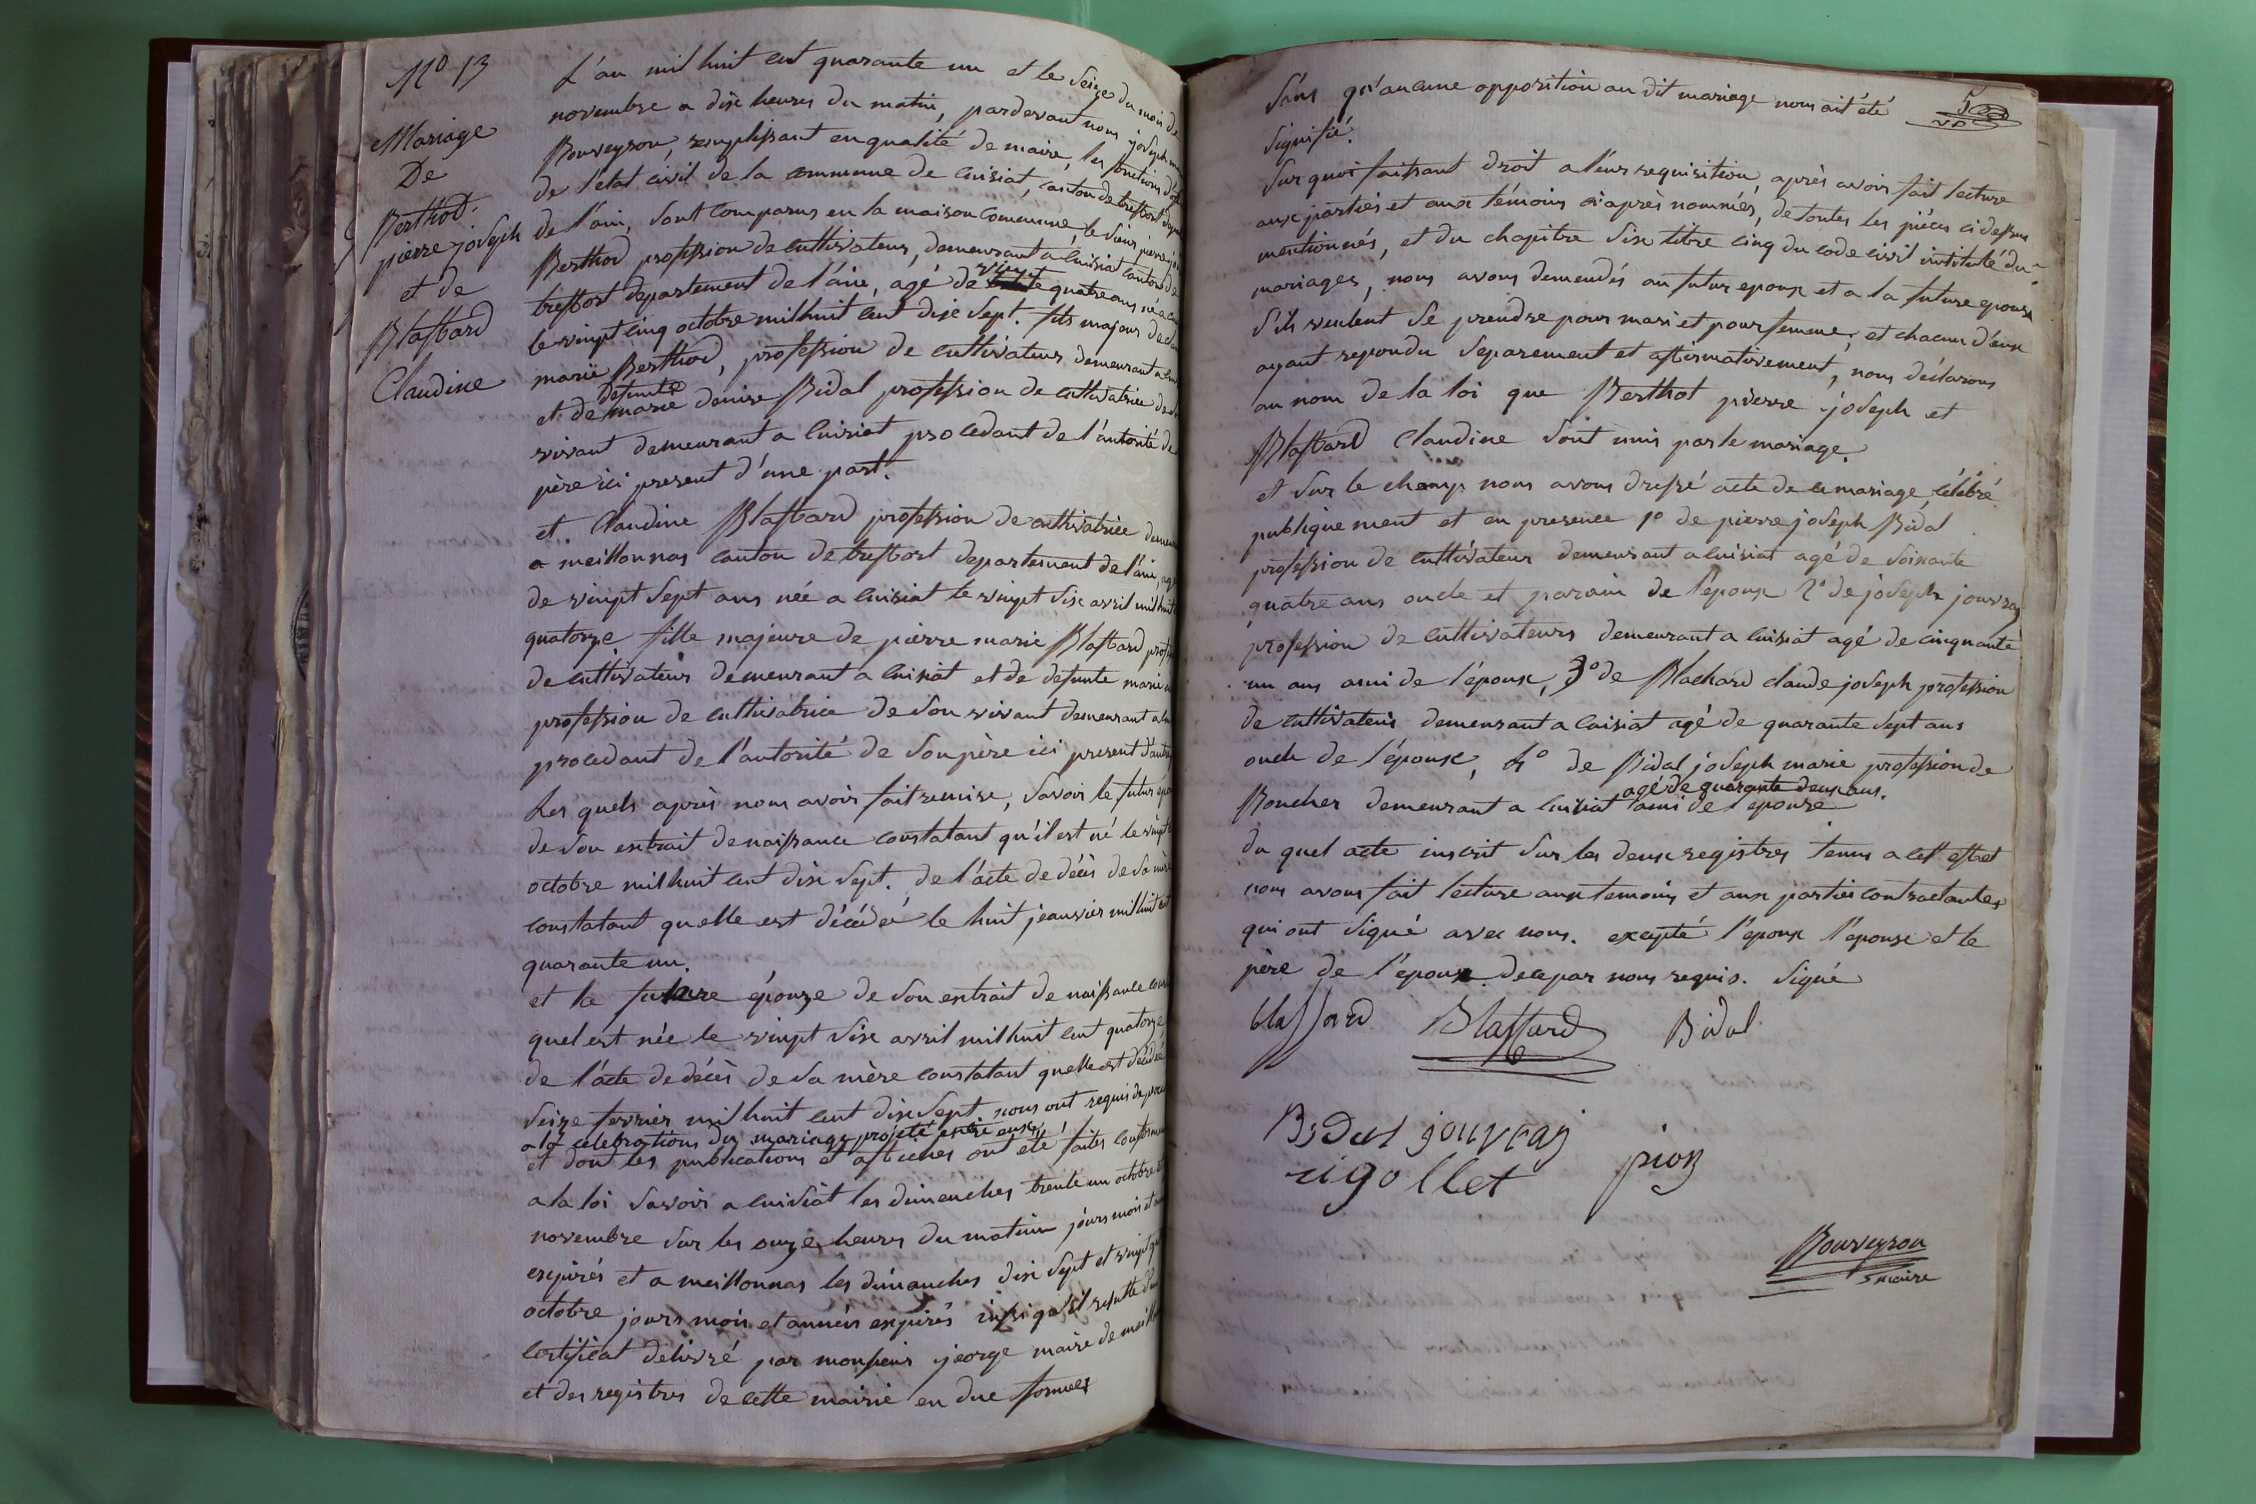 N° 13
Mariage
De
Berthod
pierre joseph
et de
Blaffard
Claudine
L'an mil huit cent quarante un et le seize du mois de
novembre a dix heures du matin, pardevant nous joseph
Bouveyron, remplissant en qualité de maire, les fonctions
de l'etat civil de la commune de Cuisiat, canton de treffort
de l'ain, sont comparus en la maison commune, le sieur pierre
Berthod profession de cultivateur, demeurant a Cuisiat canton de
treffort departement de l'ain, agé de vingt quatre ans né a
le vingt cinq octobre mil huit cent dix sept. fils majeur de
marie Berthod, profession de cultivateur demeurant a
et de defunte marie denise Bidal profession de cultivatrice de
vivant demeurant a Cuisiat procedant de l'autorité de
père ici present d'une part.
et Claudine Blaffard profession de cultivatrice
a meillonnas canton de treffort departement de l'ain,
de vingt sept ans née a Cuisiat le vingt six avril mil huit
quatorze fille majeure de pierre marie Blaffard
de cultivateur demeurant a Cuisiat et de defunte marie
profession de cultivatrice de son vivant demeurant a
procedant de l'autorité de son père ici present d'autre
Les quels après nous avoir fait remise, savoir le futur
de son extrait de naissance constatant qu'il est né le vingt
octobre mil huit cent dix sept. de l'acte de décès de sa mère
constatant quelle est décédeé le huit jeanvier mil huit cent
quarante un.
et la future épouze de son extrait de naissance
quel est née le vingt six avril mil huit cent quatorze
de l'acte de décès de sa mère constatant quelle est décédeé
seize fevrier mil huit cent dix sept. nous ont requis de
a la celebrations du mariage projeté entre eux,
et dont les publications et affiches ont été faites
a la loi savoir a cuisiat les dimenches trente un octobre
novembre sur les onze heures du matin jours mois et
expirés et a meillonnas les dimanches dix sept et vingt
octobre jours mois et années expirés insi qu'il resulte
certificat délivré par monsieur jeorge maire de
et des registres de cette mairie en due formes
sans qu'aucune opposition au dit mariage nous ait été
signifié.
Sur quoi faisant droit a leur requisition, après avoir fait lecture
aux parties et aux témoins ci après nommés, de toutes les pièces ci dessus
mentionnés, et du chapitre six titre cinq du code civil intitulé du
mariages, nous avons demendés au futur epoux et a la future epouse
s'ils veulent se prendre pour mari et pour femme; et chacun d'eux
ayant repondu separement et affirmativement, nous déclarons
au nom de la loi que Berthot pierre joseph et
Blaffard Claudine sont unis par le mariage.
et sur le champ nous avons dressé acte de ce mariage célébré
publiquement et en presence 1° de pierre joseph Bidal
profession de cultivateur demeurant a cuisiat agé de soixante
quatre ans oncle et parain de l'époux 2° de joseph jouvray
profession de cultivateurs demeurant a cuisiat agé de cinquante
un ans ami de l'époux, 3° de Blachard claude joseph profession
de cultivateur demeurant a cuisiat agé de quarante sept ans
oncle de l'épouse, 4° de Bidal joseph marie profession de
agé de quarante deux ans.
Boucher demeurant a Cuisiat ami de l'epouse
du quel acte inscrit sur les deux registres tenus a cet effet
nous avons fait lecture aux temoins et aux parties contractantes
qui ont signé avec nous. excepté l'epoux l'epouse et le
père de l'epoux de ce par nous requis. signé
blaffard Blaffard Bidal
Bidal jouvray
rigollet pion
Bouveyron
maire